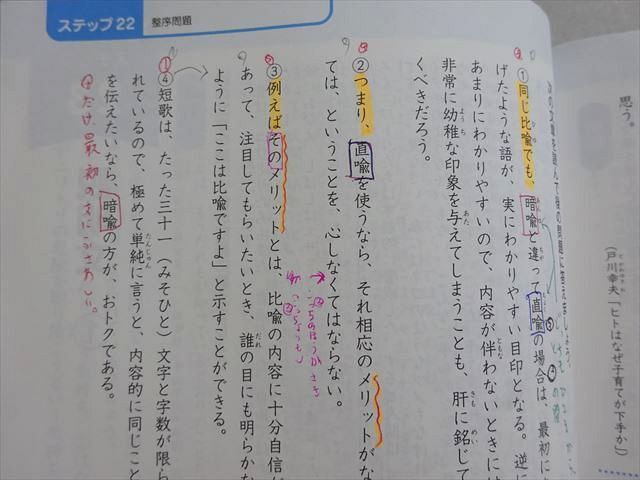 ステップ22 整序問題
思う。
(戸川幸夫「ヒトはなぜ子育てが下手か」
次の文章を読んで後の問題に答えましょう。
①同じ比喩でも、暗喩と違って直喩の場合は、最初に
げたような語が、実にわかりやすい目印となる。逆に
あまりにわかりやすいので、内容が伴わないときには
非常に幼稚な印象を与えてしまうことも、肝に銘じて
くべきだろう。
②つまり、直喩を使うなら、それ相応のメリットがな
ては、ということを、心しなくてはならない。
③例えばそのメリットとは、比喩の内容に十分自信が
あって、注目してもらいたいとき、誰の目にも明らかな
ように「ここは比喩ですよ」と示すことができる。
④短歌は、たった三十一(みそひと)文字と字数が限ら
れているので、極めて単純に言うと、内容的に同じこと
を伝えたいなら、暗喩の方が、おトクである。
④だけ、最初の文にふさわしい。